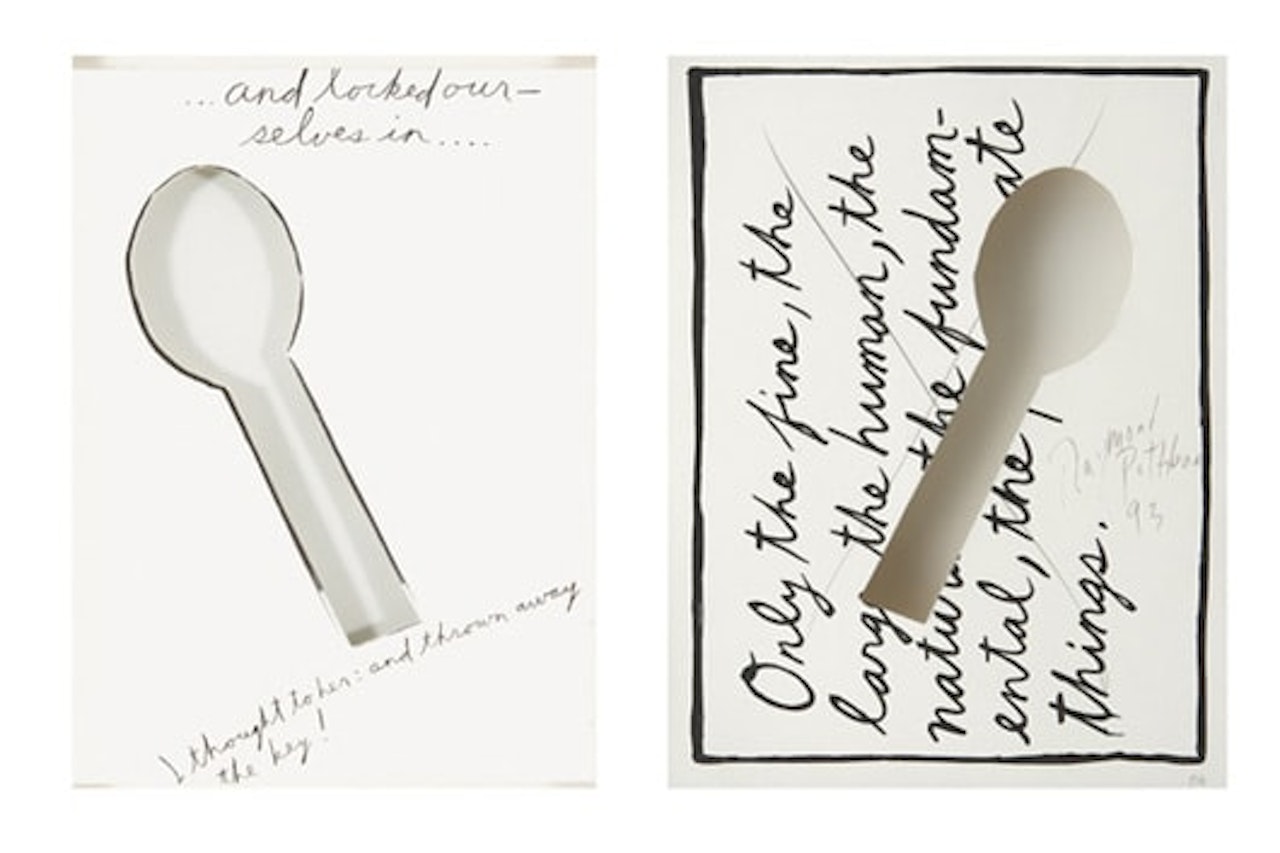 ...and locked our-
selves in....
I thought to her: and thrown away
the key!
Only the fine, the
larg the human, the
natura the fundam-
ental, the ate
things.
Raymond
Pettibon
93